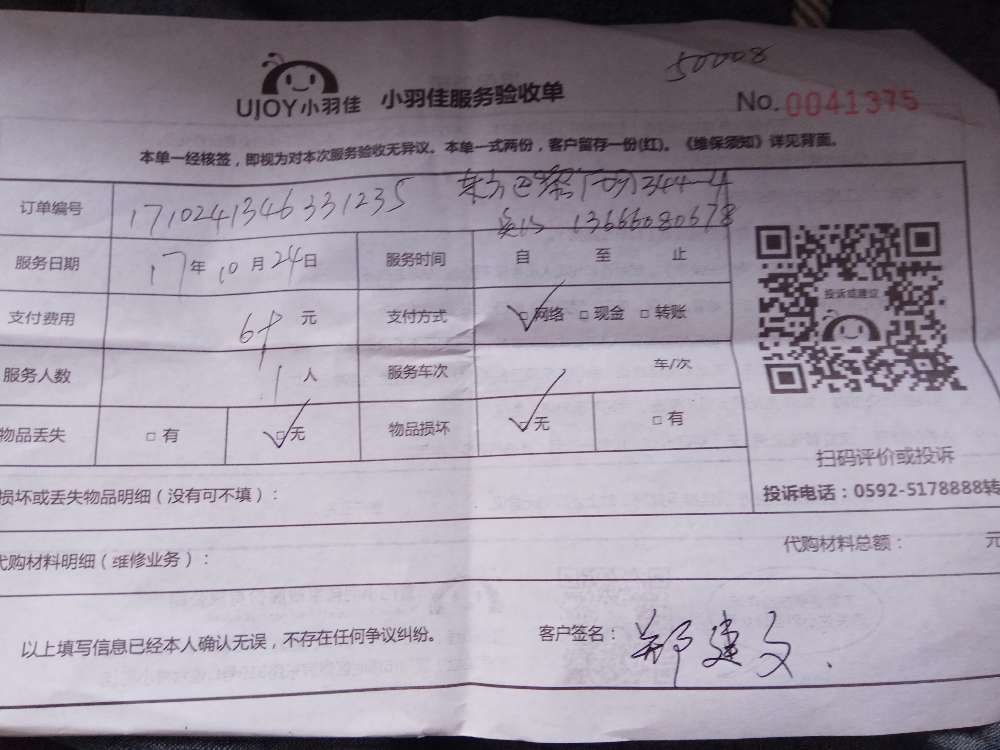 50008
UJOY小羽佳 小羽佳服务验收单
No. 0041375
本单一经核签，即视为对本次服务验收无异议。本单一式两份，客户留存一份(红)。《维保须知》详见背面。
订单编号 1710241346331235 344-4
13666080678
服务日期 17年10月24日 服务时间 自 至 止
支付费用 元 支付方式 □网络 □现金 □转账
投诉或建议
服务人数 1人 服务车次 车/次
物品丢失 □有 □无 物品损坏 □无 □有
扫码评价或投诉
损坏或丢失物品明细（没有可不填）：
投诉电话：0592-5178888转
代购材料明细（维修业务）：
代购材料总额： 元
以上填写信息已经本人确认无误，不存在任何争议纠纷。
客户签名：郑建文